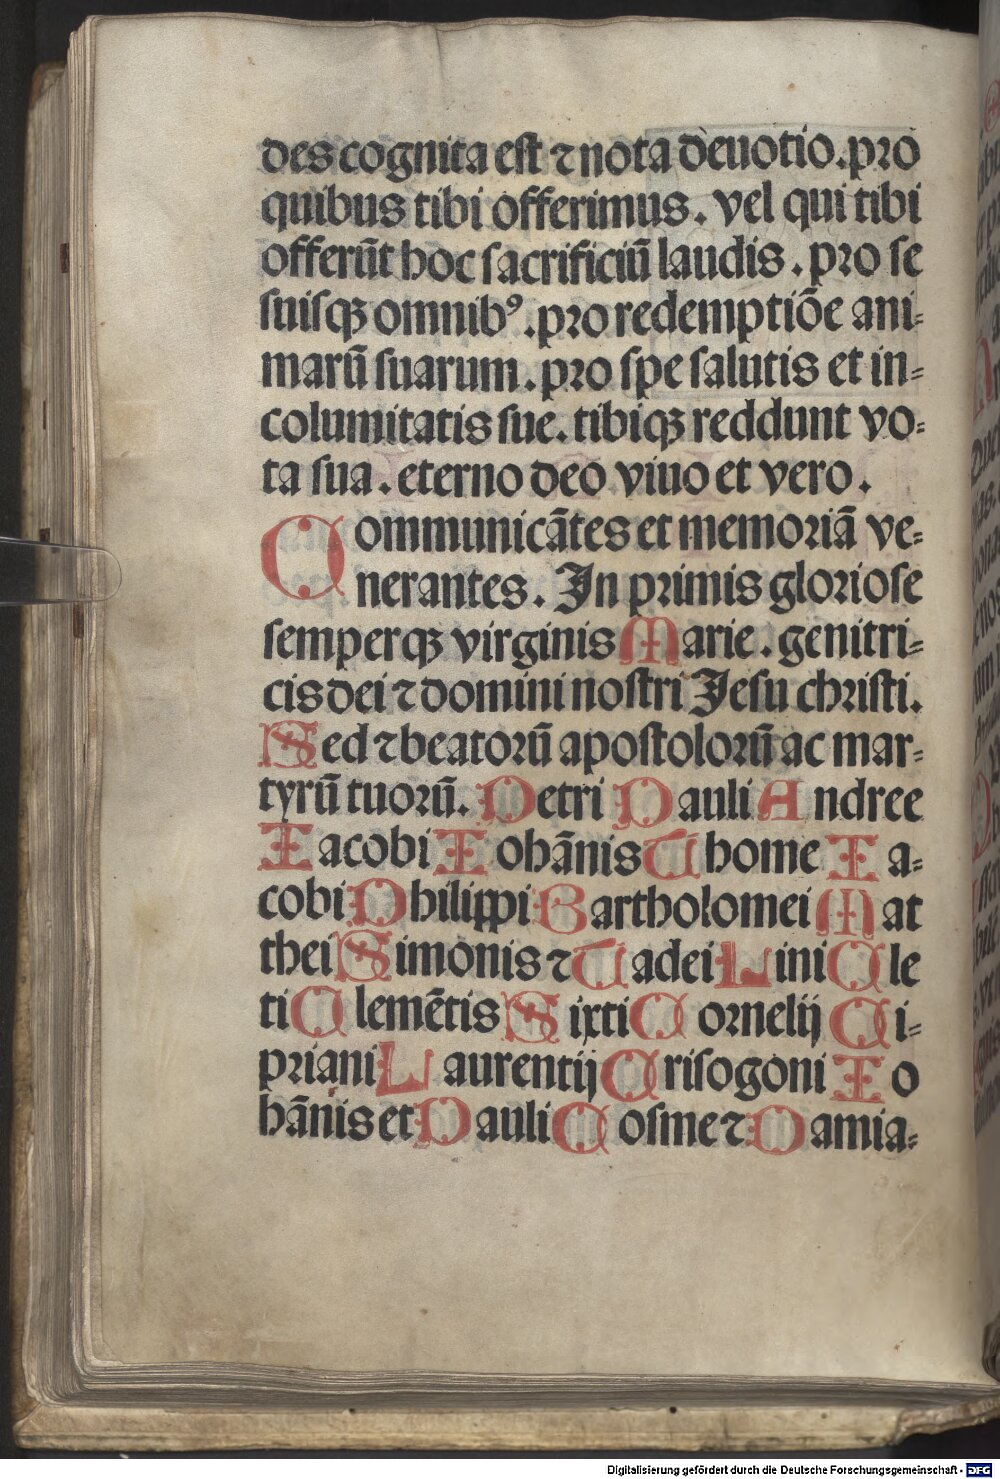 des cognita est ⁊ nota deuotio. pro
quibus tibi offerimus. vel qui tibi
offerūt hoc sacrificiū laudis. pro se
suisqꝫ omnibꝰ. pro redemptiōe ani⸗
marū suarum. pro spe salutis et in⸗
columitatis sue. tibiqꝫ reddunt vo⸗
ta sua. eterno deo viuo et vero.
Communicātes et memoriā ve⸗
nerantes. In primis gloriose
semperqꝫ virginis Marie. genitri⸗
cis dei ⁊ domini nostri Jesu christi.
Sed ⁊ beatorū apostolorū ac mar⸗
tyrū tuorū. Petri Pauli Andree
Iacobi Iohānis Thome Ia⸗
cobi Philippi Bartholomei Mat
thei Simonis ⁊ Tadei Lini Cle
ti Clemētis Sixti Cornelij Ci⸗
priani Laurentij Crisogoni Io
hānis et Pauli Cosme ⁊ Damia⸗
Digitalisierung gefördert durch die Deutsche Forschungsgemeinschaft - DFG